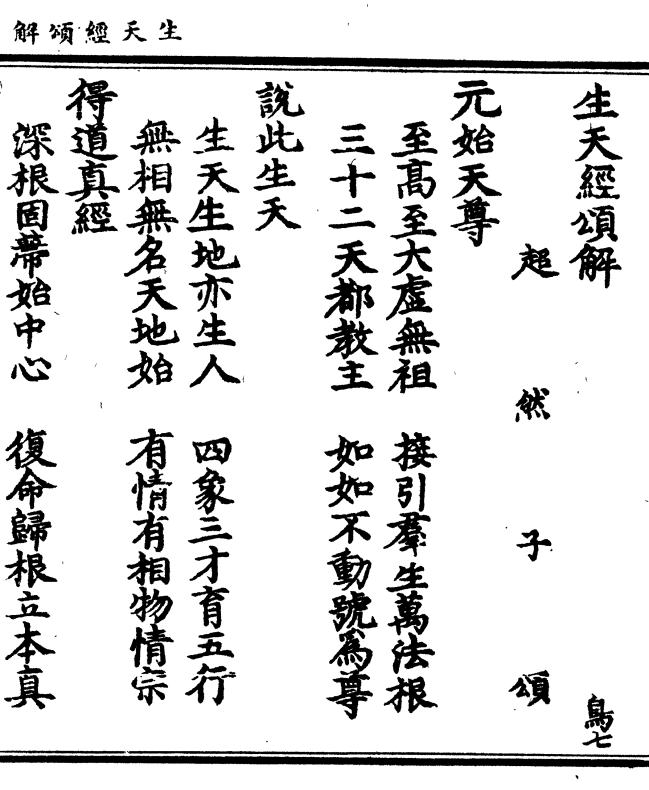 生天經頌解
生天經頌解 鳥七
超然子頌
元始天尊
至高至大虛無祖 接引羣生萬法根
三十二天都教主 如如不動號為尊
說此生天
生天生地亦生人 四象三才育五行
無相無名天地始 有情有相物情宗
得道真經
深根固蔕始中心 復命歸根立本真